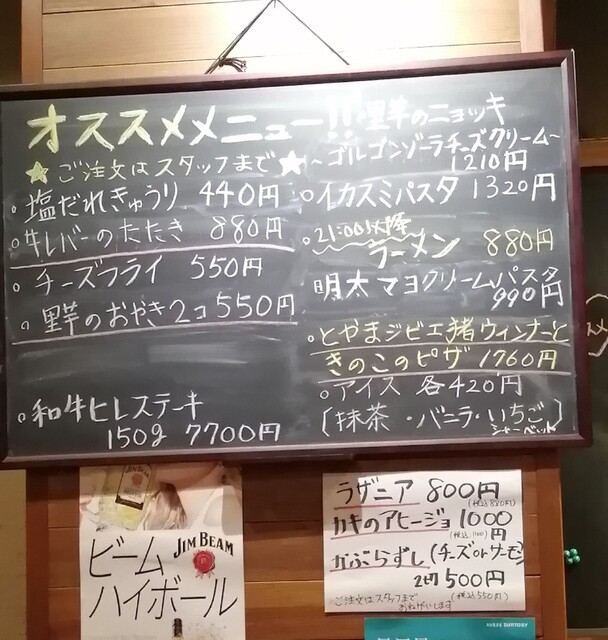 オススメメニュー!!
★ご注文はスタッフまで★
。塩だれきゅうり 440円
。牛レバーのたたき 880円
。チーズフライ 550円
。里芋のおやき2コ 550円
。和牛ヒレステーキ
150g 7700円
里芋のニョッキ
~ゴルゴンゾーラチーズクリーム~
1210円
。イカスミパスタ 1320円
。21:00以降
ラーメン 880円
明太マヨクリームパスタ
990円
。とやまジビエ猪ウィンナーと
きのこのピザ 1760円
。アイス 各420円
〔抹茶・バニラ・いちご〕
シャーベット
ラザニア 800円
(税込880円)
カキのアヒージョ 1000円
(税込1100円)
かぶらずし(チーズorサーモン)
2切 500円
(税込550円)
ご注文はスタッフまで
おねがいします
JIM BEAM
ビーム
ハイボール
JIM BEAM
SUNTORY